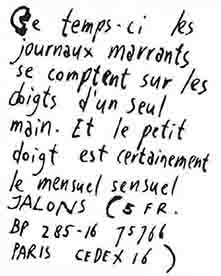 Ce temps-ci les
journaux marrants
se comptent sur les
doigts d'un seul
main. Et le petit
doigt est certainement
le mensuel sensuel
JALONS (5 FR.
BP 285-16 75766
PARIS CEDEX 16)